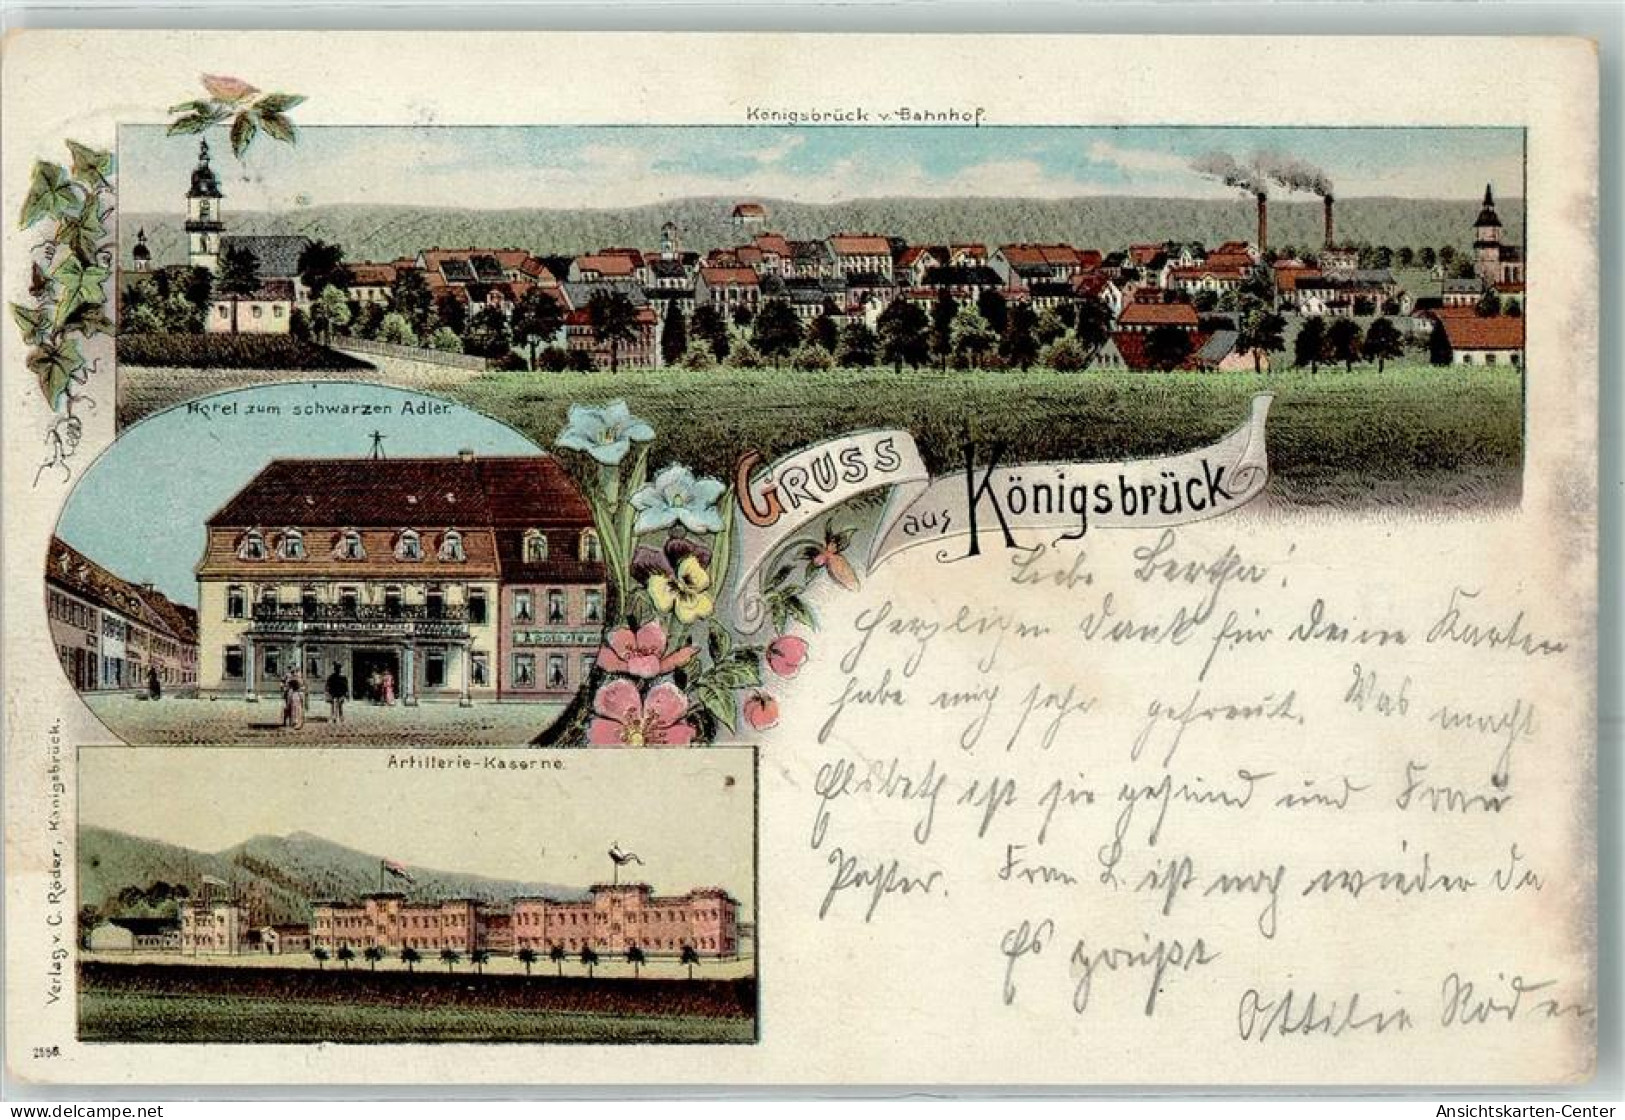 Königsbrück v. Bahnhof.
Hotel zum schwarzen Adler.
Apotheke
GRUSS
aus Königsbrück
Liebe Bertha!
Herzlichen Dank für deine Karten
habe mich sehr gefreut. Was macht
Elsbeth ist sie gesund und Frau
Paster. Frau L. ist noch wieder da
Es grüßt
Ottilie Röder
Artillerie-Kaserne.
Verlag v. C. Röder, Königsbrück.
2556.
www.delcampe.net
Ansichtskarten-Center